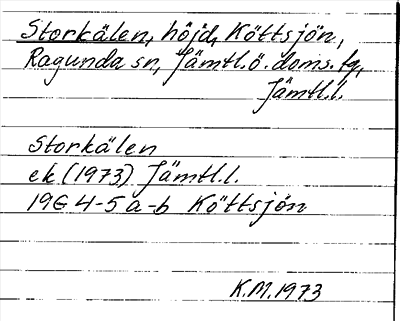 Storkälen, höjd, Köttsjön,
Ragunda sn, Jämtl.ö. doms. tg,
Jämtl.l.
Storkälen
ek (1973) Jämtl.l.
19G 4-5 a-b Köttsjön
K.M. 1973